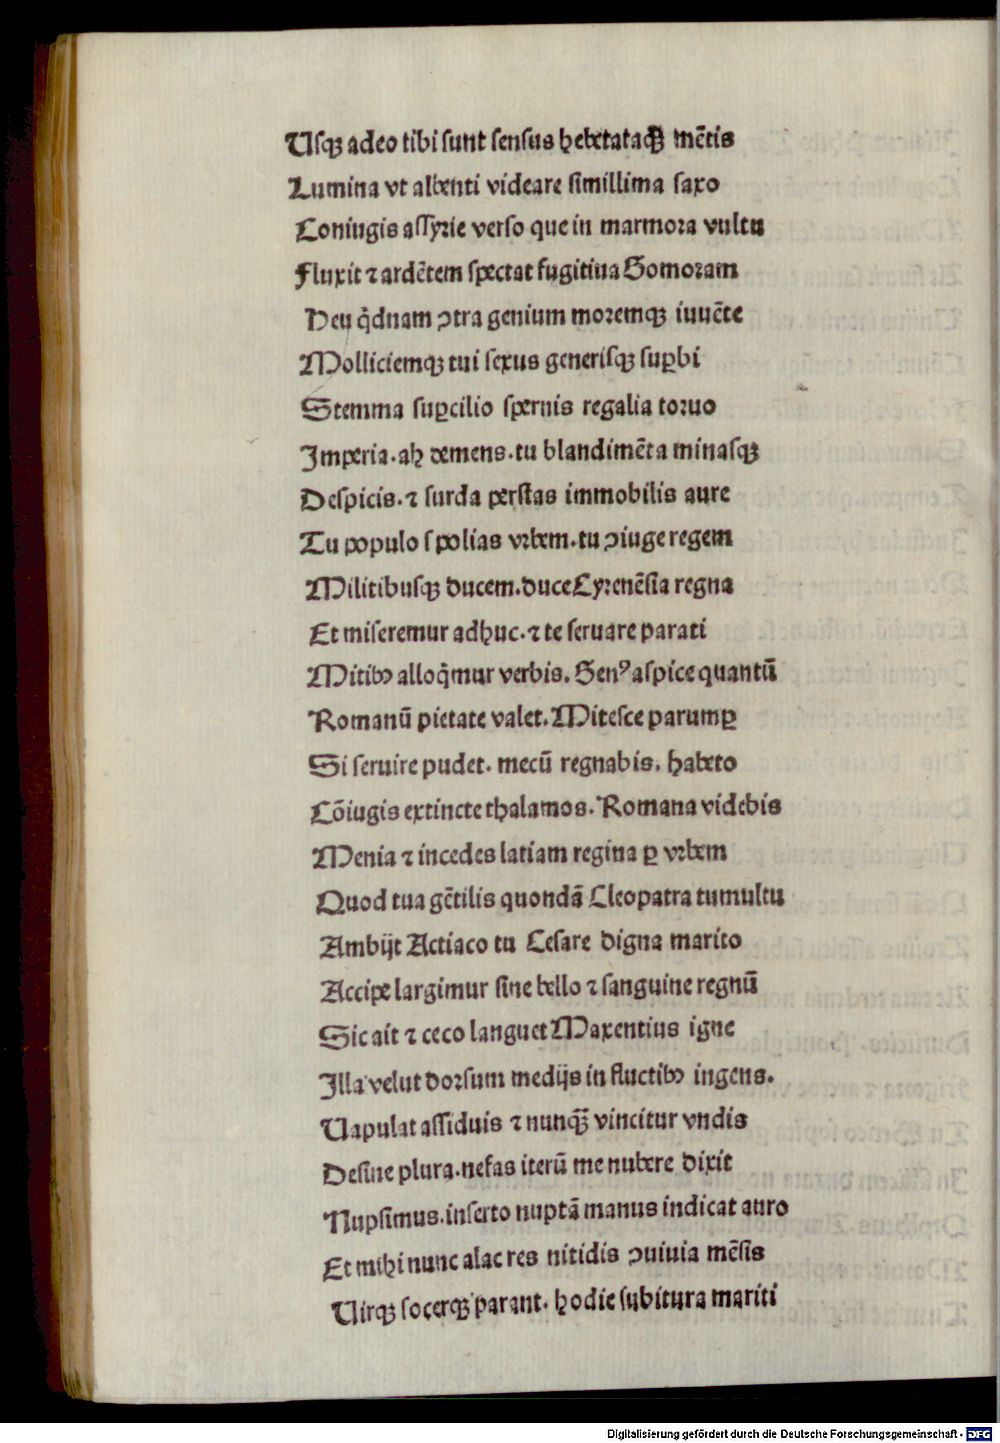 Usqꝫ adeo tibi sunt sensus hebetataqꝫ mẽtis
Lumina vt albenti videare simillima saxo
Coniugis assyrie verso que in marmora vultu
Fluxit ⁊ ardẽtem spectat fugitiua Gomoram
Heu q̇dnam ↄtra genium moremqꝫ iuuẽte
Molliciemqꝫ tui sexus generisqꝫ suꝑbi
Stemma suꝑcilio spernis regalia toruo
Imperia. ah demens. tu blandimẽta minasqꝫ
Despicis. ⁊ surda perstas immobilis aure
Tu populo spolias vrbem. tu ↄiuge regem
Militibusqꝫ ducem. duce Cyrenẽsia regna
Et miseremur adhuc. ⁊ te seruare parati
Mitibꝰ alloq̇mur verbis. Genꝰ aspice quantũ
Romanũ pietate valet. Mitesce parumꝑ
Si seruire pudet. mecũ regnabis. habeto
Cõiugis extincte thalamos. Romana videbis
Menia ⁊ incedes latiam regina ꝑ vrbem
Quod tua gẽtilis quondã Cleopatra tumultu
Ambijt Actiaco tu Cesare digna marito
Accipe largimur sine bello ⁊ sanguine regnũ
Sic ait ⁊ ceco languet Maxentius igne
Illa velut dorsum medijs in fluctibꝰ ingens.
Uapulat assiduis ⁊ nunq̃ vincitur vndis
Desine plura. nefas iterũ me nubere dixit
Nupsimus. inserto nuptã manus indicat auro
Et mihi nunc alacres nitidis ↄuiuia mẽsis
Uirqꝫ socerqꝫ parant. hodie subitura mariti
Digitalisierung gefördert durch die Deutsche Forschungsgemeinschaft - DFG